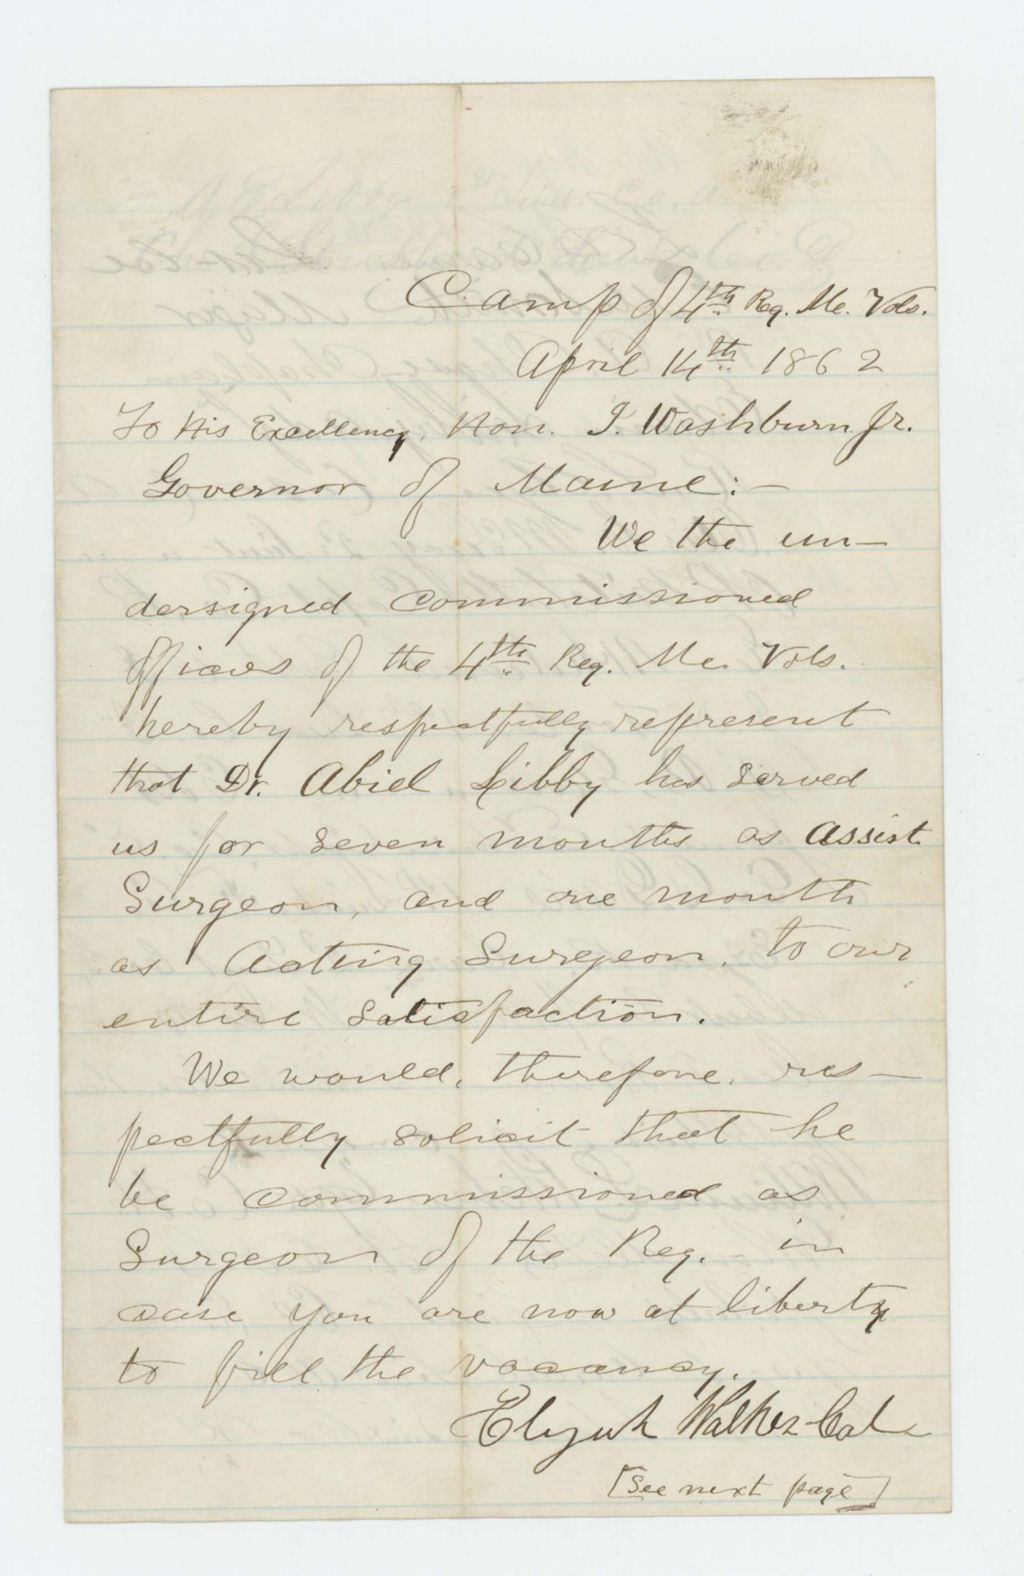 Camp of 4th Reg. Me. Vols.
April 14th 1862
To His Excellency, Hon. I. Washburn Jr.
Governor of Maine:—
We the un—
dersigned commissioned
officers of the 4th Reg. Me. Vols.
hereby respectfully represent
that Dr. Abiel Libby has served
us for seven months as Assist.
Surgeon, and one month
as Acting Surgeon, to our
entire satisfaction.
We would, therefore, res—
pectfully solicit that he
be commissioned as
Surgeon of the Reg. in
case you are now at liberty
to fill the vacancy.
Elijah Walker Col
[See next page]